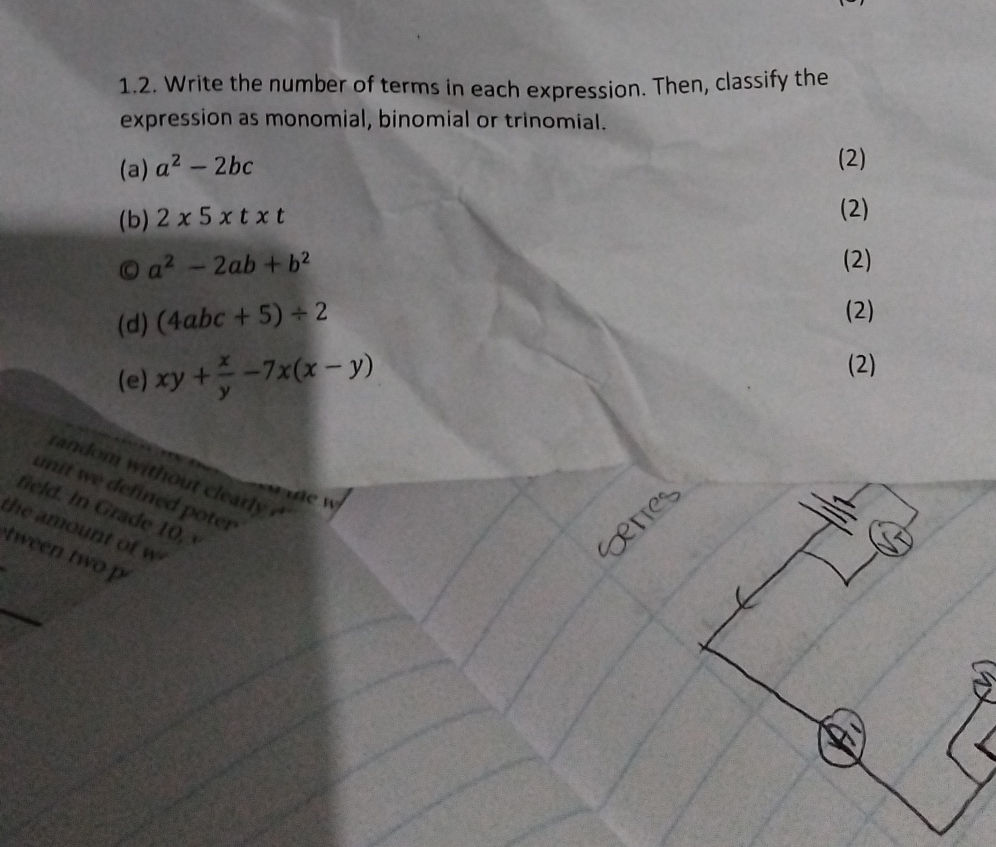 1.2. Write the number of terms in each expression. Then, classify the
expression as monomial, binomial or trinomial.
(a) a² − 2bc (2)
(b) 2 x 5 x t x t (2)
© a² − 2ab + b² (2)
(d) (4abc + 5) ÷ 2 (2)
(e) xy + x/y −7x(x − y) (2)
random without clearly
unit we defined
field. In Grade 10,
the amount of
two
series
V